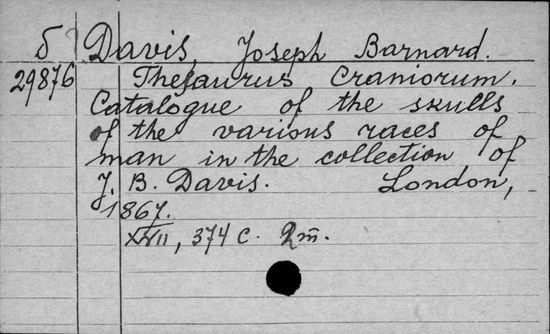 5 Davis, Joseph Barnard.
29876 Thesaurus Craniorum.
Catalogue of the skulls
of the various races of
man in the collection of
J. B. Davis. London,
1867.
XVII, 374 c. 2m̄.